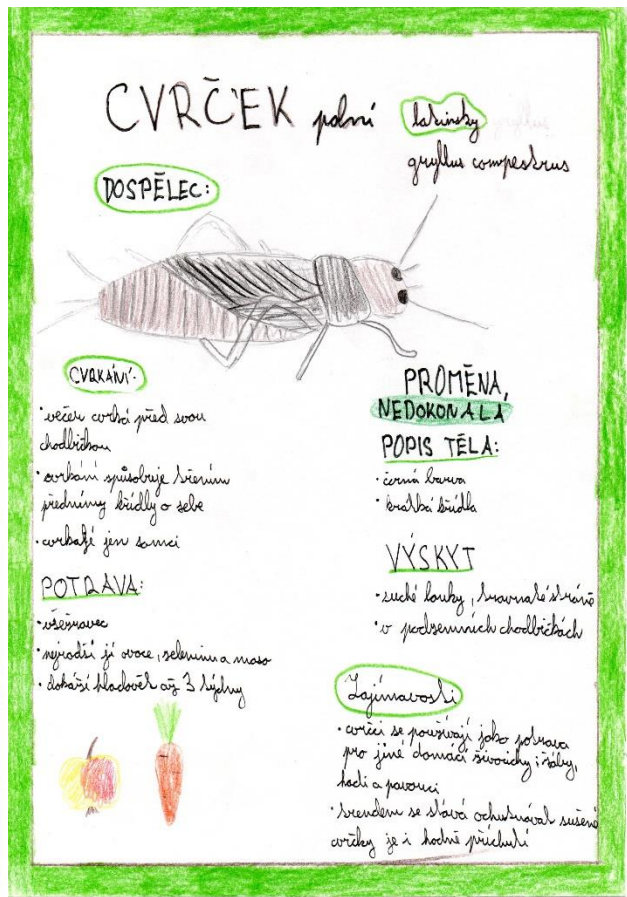 CVRČEK polní
latinsky
gryllus compestrus
DOSPĚLEC:
CVRKÁNÍ:
• večer cvrká před svou
chodbičkou
• cvrkání způsobuje třením
předními křídly o sebe
• cvrkají jen samci
POTRAVA:
• všežravec
• nejradši jí ovoce, zeleninu a maso
• dokáží hladovět až 3 týdny
PROMĚNA,
NEDOKONALÁ
POPIS TĚLA:
• černá barva
• krátká křídla
VÝSKYT
• suché louky, travnaté stráně
• v podzemních chodbičkách
Zajímavosti
• cvrčci se používají jako potrava
pro jiné domácí živočichy; žáby,
hadi a pavouci
• trendem se stává ochutnávat sušené
cvrčky je i hodně příchutí